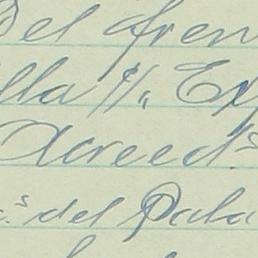 Del fren
lla c/. Ex
Acreed.s
a.s del Pala